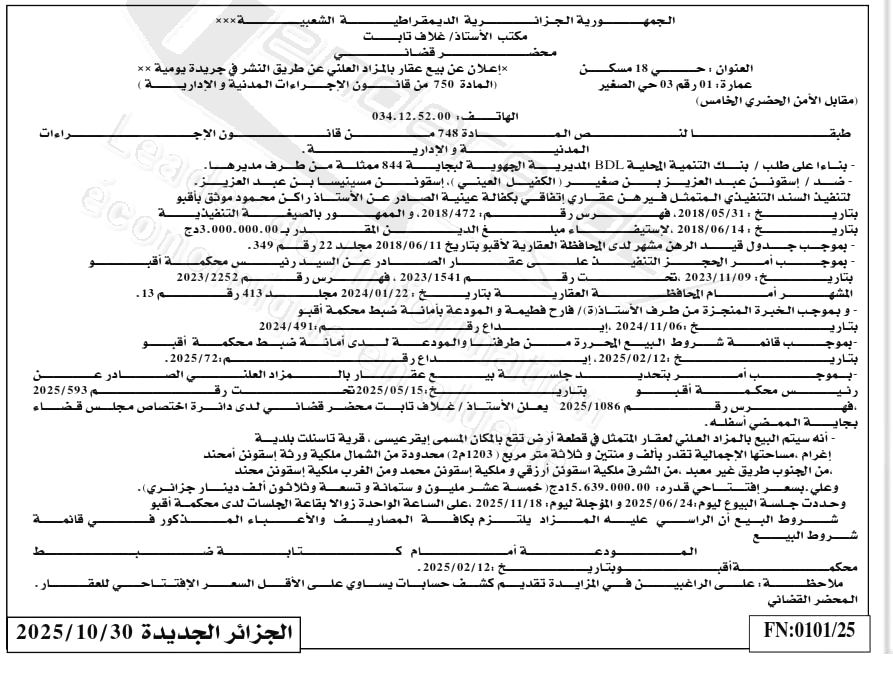 الجمهورية الجزائرية الديمقراطية الشعبية×××
مكتب الأستاذ/ غلاف ثابت
محضر قضائي
العنوان : حي 18 مسكن
عمارة: 01 رقم 03 حي الصغير
(مقابل الأمن الحضري الخامس)
×إعلان عن بيع عقار بالمزاد العلني عن طريق النشر في جريدة يومية ××
(المادة 750 من قانون الإجراءات المدنية و الإدارية )
الهاتف: 034.12.52.00
طبقا لنص المادة 748 من قانون الإجراءات
المدنية و الإدارية.
- بناءا على طلب / بنك التنمية المحلية BDL المديرية الجهوية لبجاية 844 ممثلة من طرف مديرها.
- ضد / إسقونن عبد العزيز بن صغير ( الكفيل العيني )، إسقونن مسينيسا بن عبد العزيز.
لتنفيذ السند التنفيذي المتمثل في رهن عقاري إتفاقي بكفالة عينية الصادر عن الأستاذ راكن محمود موثق بأقبو
بتاريخ : 2018/05/31، فهرس رقم: 2018/472، و الممهور بالصيغة التنفيذية
بتاريخ : 2018/06/14، لإستيفاء مبلغ الدين المقدر بـ 3.000.000.00دج
- بموجب جدول قيد الرهن مشهر لدى المحافظة العقارية لأقبو بتاريخ 2018/06/11 مجلد 22 رقم 349.
- بموجب أمر الحجز التنفيذي على عقار الصادر عن السيد رئيس محكمة أقبو
بتاريخ: 2023/11/09 ،تحت رقم 2023/1541 ، فهرس رقم 2023/2252
المشهر أمام المحافظة العقارية بتاريخ : 2024/01/22 مجلد 413 رقم 13.
- و بموجب الخبرة المنجزة من طرف الأستاذ(ة)/ فارح فطيمة و المودعة بأمانة ضبط محكمة أقبو
بتاريخ :2024/11/06 ،إيداع رقم:2024/491
-بموجب قائمة شروط البيع المحررة من طرفنا والمودعة لدى أمانة ضبط محكمة أقبو
بتاريخ :2025/02/12، إيداع رقم:2025/72.
-بموجب أمر بتحديد جلسة بيع عقار بالمزاد العلني الصادر عن
رئيس محكمة أقبو بتاريخ:2025/05/15 تحت رقم 2025/593
،فهرس رقم 2025/1086 يعلن الأستاذ / غلاف ثابت محضر قضائي لدى دائرة اختصاص مجلس قضاء
بجاية الممضي أسفله.
- أنه سيتم البيع بالمزاد العلني لعقار المتمثل في قطعة أرض تقع بالمكان المسمى إيقرعيسى ، قرية تاسلنت بلدية
إغرام ،مساحتها الإجمالية تقدر بألف و منتين و ثلاثة متر مربع (1203م2) محدودة من الشمال ملكية ورثة إسقونن أمحند
،من الجنوب طريق غير معبد ،من الشرق ملكية اسقونن أرزقي و ملكية إسقونن محمد ومن الغرب ملكية إسقونن محند
وعلي.بسعر إفتتاحي قدره: 15.639.000.00دج( خمسة عشر مليون و ستمائة و تسعة وثلاثون ألف دينار جزائري).
وحددت جلسة البيوع ليوم:2025/06/24 و المؤجلة ليوم: 2025/11/18 ،على الساعة الواحدة زوالا بقاعة الجلسات لدى محكمة أقبو
شروط البيع أن الراسي عليه المزاد يلتزم بكافة المصاريف والأعباء المذكور في قائمة
شروط البيع
المودعة أمام كتابة ضبط
محكمة أقبو وبتاريخ :2025/02/12.
ملاحظة : على الراغبين في المزايدة تقديم كشف حسابات يساوي على الأقل السعر الإفتتاحي للعقار .
المحضر القضائي
الجزائر الجديدة 2025/10/30
FN:0101/25